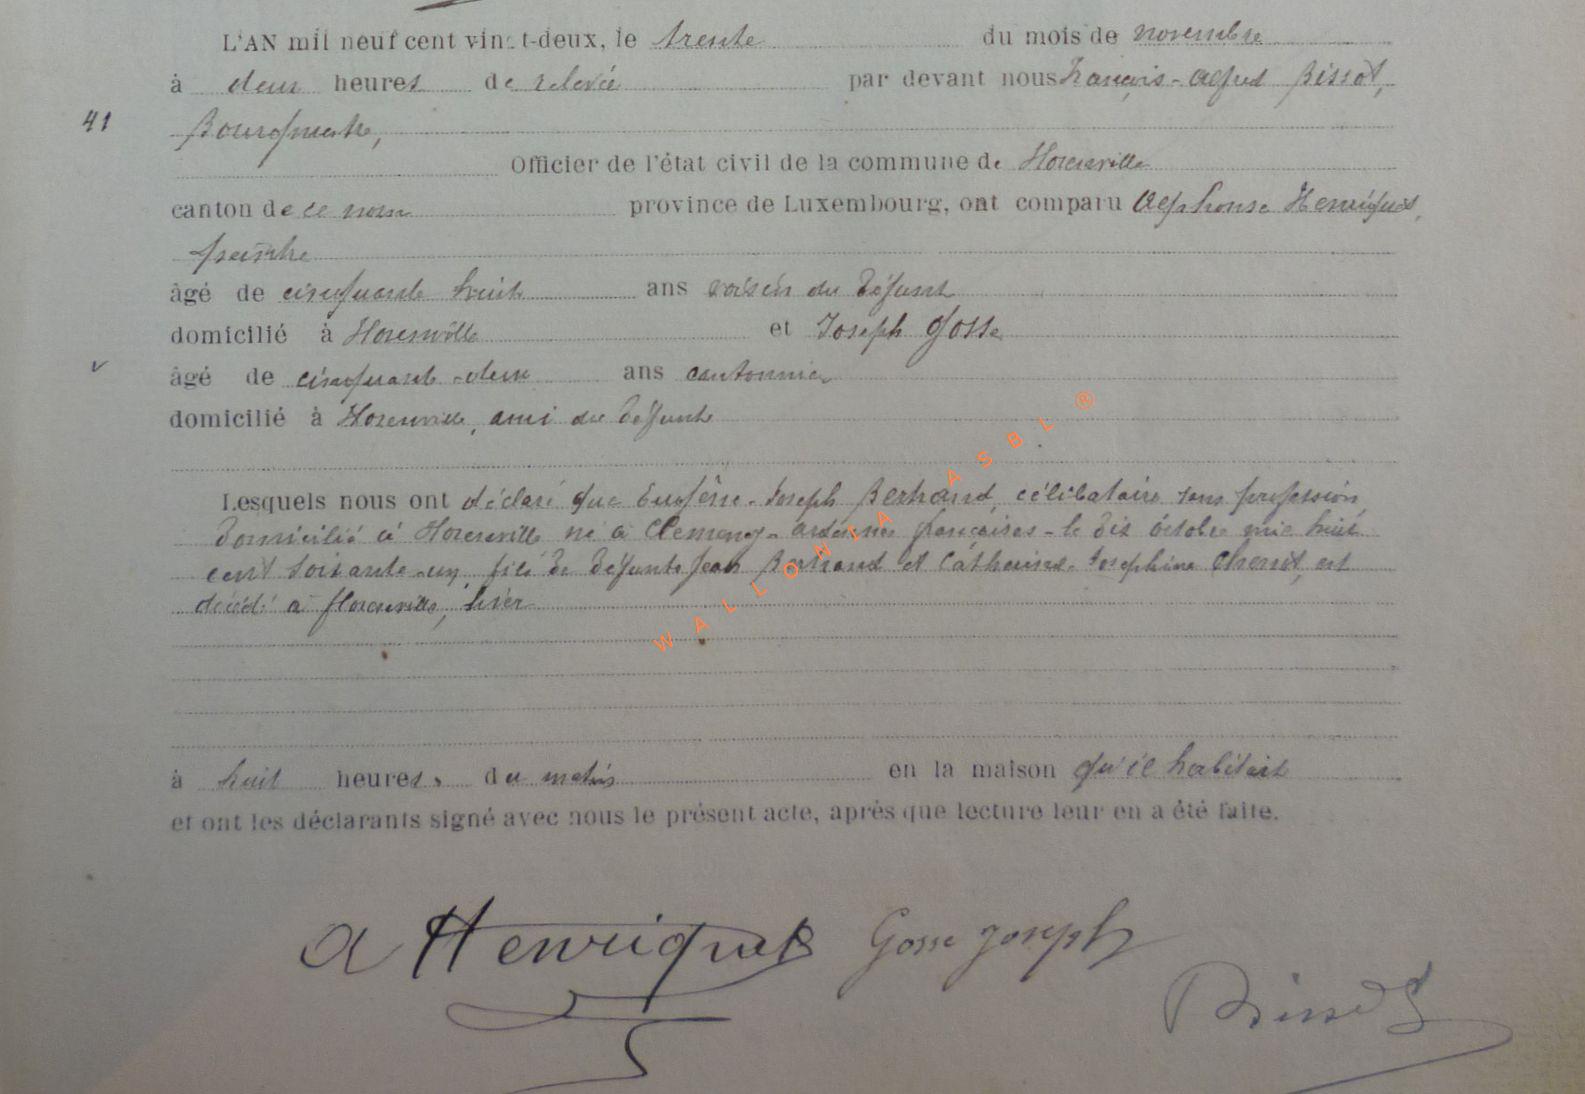 L'AN mil neuf cent vingt-deux, le trente du mois de novembre
à deux heures de relevée par devant nous François-Alfred Bissot,
41
Bourgmestre,
Officier de l'état civil de la commune de Florenville
canton de ce nom province de Luxembourg, ont comparu Alphonse Henriquet,
peintre
âgé de cinquante huit ans voisin du défunt
domicilié à Florenville et Joseph Gosse
âgé de cinquante-deux ans cantonnier
domicilié à Florenville, ami du défunt
Lesquels nous ont déclaré que Eugène-Joseph Bertrand, célibataire sans profession
domicilié à Florenville né à Clemency-ardennes françaises-le dix octobre mil huit
cent soixante-un, fils de défunts Jean Bertrand et Catherine-Joséphine Chenot, est
décédé à Florenville, hier
à huit heures du matin en la maison qu'il habitait
et ont les déclarants signé avec nous le présent acte, après que lecture leur en a été faite.
A Henriquet Gosse Joseph
Bissot
WALLONIA ASBL ®